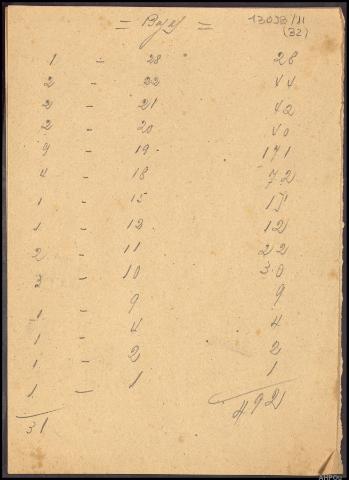 13093/11
(32)
1 - 28 28
2 - 22 44
2 - 21 42
2 - 20 40
9 - 19 - 171
4 - 18 72
1 - 15 15
1 - 12 12
2 - 11 22
3 - 10 30
1 - 9 9
1 - 4 4
1 - 2 2
1 - 1 1
31 492